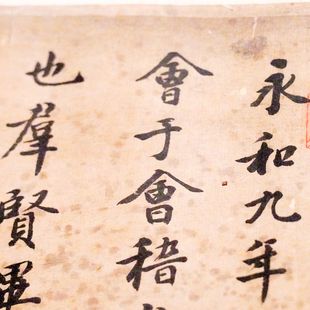 永和九年
會于會稽
也羣賢畢